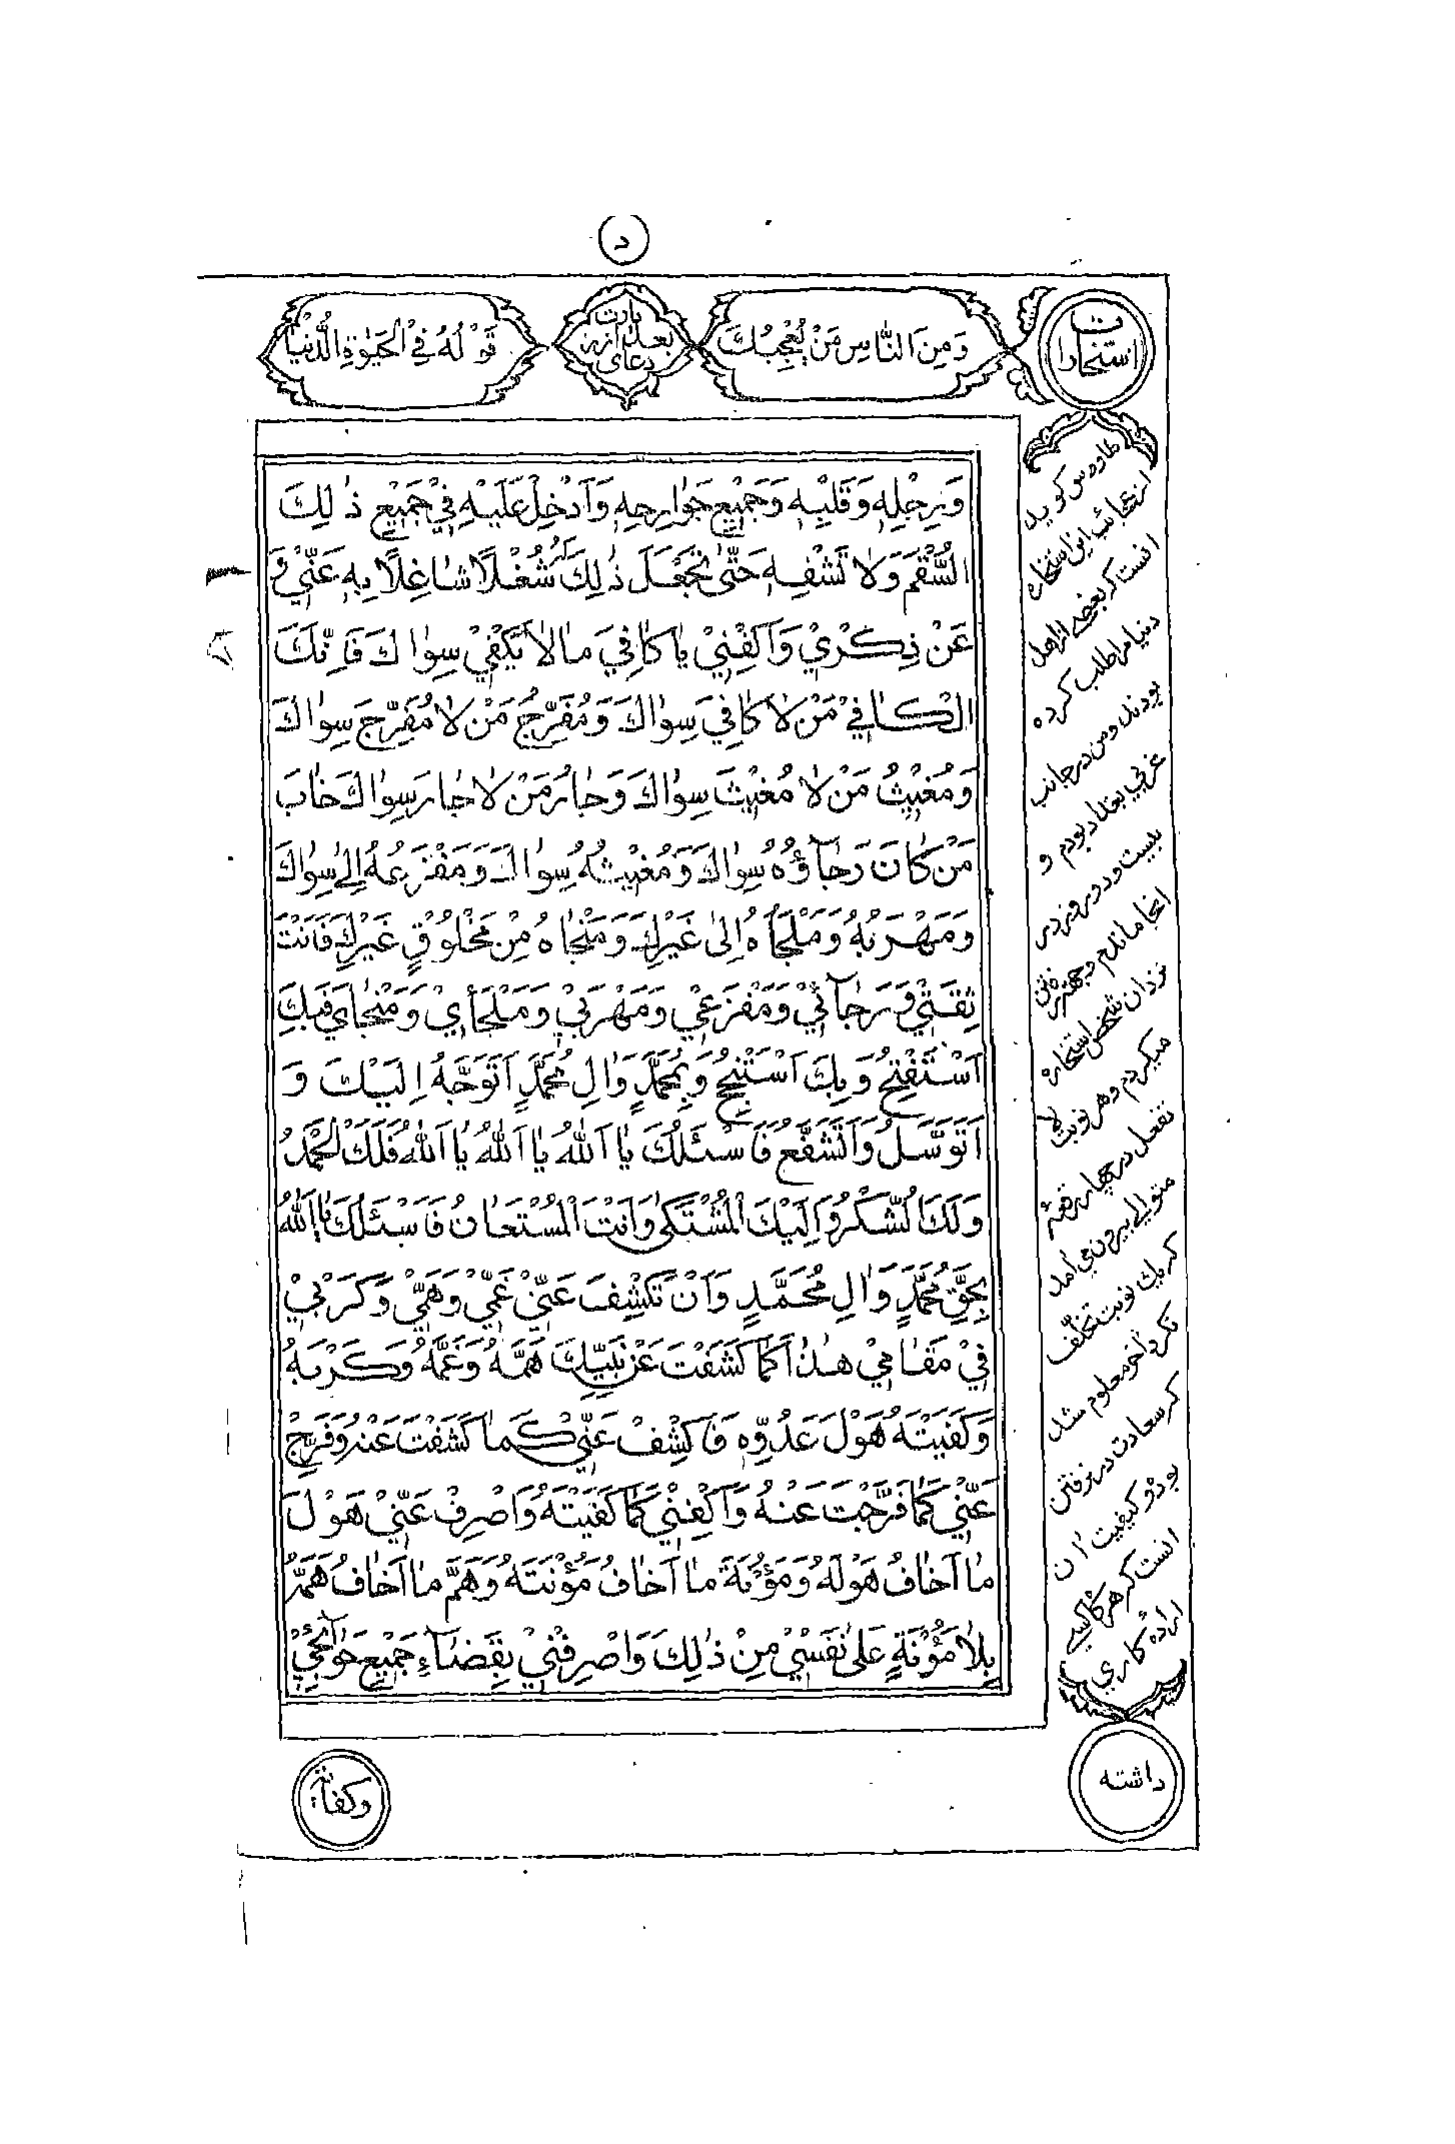 د
استخارات
وَمِنَ النَّاسِ مَنْ يُعْجِبُكَ
دعای بعد از زیارت
قَوْلُهُ فِي الْحَيٰوةِ الدُّنْيٰا
وَرِجْلِهِ وَقَلْبِهِ وَجَمِيْعِ جَوٰارِحِهِ وَاَدْخِلْ عَلَيْهِ فِيْ جَمِيْعِ ذٰلِكَ
السُّقْمَ وَلٰا تَشْفِهِ حَتّٰى تَجْعَلَ ذٰلِكَ لَهُ شُغْلًا شٰاغِلًا بِهِ عَنّيْ وَ
عَنْ ذِكْرِيْ وَاَكْفِنِيْ يٰا كٰافِيَ مٰا لٰا يَكْفِيْ سِوٰاكَ فَاِنَّكَ
الْكٰافِيْ مَنْ لٰا كٰافِيَ سِوٰاكَ وَمُفَرِّجُ مَنْ لٰا مُفَرِّجَ سِوٰاكَ
وَمُغِيْثُ مَنْ لٰا مُغِيْثَ سِوٰاكَ وَجٰارُ مَنْ لٰا جٰارَ سِوٰاكَ خٰابَ
مَنْ كٰانَ رَجٰآؤُهُ سِوٰاكَ وَمُغِيْثُهُ سِوٰاكَ وَمَفْزَعُهُ اِلىٰ سِوٰاكَ
وَمَهْرَبُهُ وَمَلْجَأُهُ اِلىٰ غَيْرِكَ وَمَنْجٰاهُ مِنْ مَخْلُوْقٍ غَيْرِكَ فَاَنْتَ
ثِقَتِيْ وَرَجٰآئِيْ وَمَفْزَعِيْ وَمَهْرَبِيْ وَمَلْجَأِيْ وَمَنْجٰايَ فَبِكَ
اَسْتَفْتِحُ وَبِكَ اَسْتَنْجِحُ وَبِمُحَمَّدٍ وَاٰلِ مُحَمَّدٍ اَتَوَجَّهُ اِلَيْكَ وَ
اَتَوَسَّلُ وَاَتَشَفَّعُ فَاَسْئَلُكَ يٰا اَللّٰهُ يٰا اَللّٰهُ يٰا اَللّٰهُ فَلَكَ الْحَمْدُ
وَلَكَ الشُّكْرُ وَاِلَيْكَ الْمُشْتَكىٰ وَاَنْتَ الْمُسْتَعٰانُ فَاَسْئَلُكَ يٰا اَللّٰهُ
بِحَقِّ مُحَمَّدٍ وَاٰلِ مُحَمَّدٍ وَاَنْ تَكْشِفَ عَنّيْ غَمّيْ وَهَمّيْ وَكَرْبِيْ
فِيْ مَقٰامِيْ هٰذٰا كَمٰا كَشَفْتَ عَنْ نَبِيِّكَ هَمَّهُ وَغَمَّهُ وَكَرْبَهُ
وَكَفَيْتَهُ هَوْلَ عَدُوِّهِ فَاكْشِفْ عَنّيْ كَمٰا كَشَفْتَ عَنْهُ وَفَرِّجْ
عَنّيْ كَمٰا فَرَّجْتَ عَنْهُ وَاَكْفِنِيْ كَمٰا كَفَيْتَهُ وَاَصْرِفْ عَنّيْ هَوْلَ
مٰا اَخٰافُ هَوْلَهُ وَمَؤُنَةَ مٰا اَخٰافُ مَؤُنَتَهُ وَهَمَّ مٰا اَخٰافُ هَمَّهُ
بِلٰا مَؤُنَةٍ عَلىٰ نَفْسِيْ مِنْ ذٰلِكَ وَاَصْرِفْنِيْ بِقَضٰآءِ جَمِيْعِ حَوٰآئِجِيْ
طاووس گوید
از عجائب این استخاره
انست که بعضی از اهل
دنیا مرا طلب کرده
بودند ومن در جانب
غربی بغداد بودم و
بیست ودو روز در
انجا ماندم و جهة رفتن
نزد ان شخص استخاره
میکردم وهر نوبت لا
تفعل در چهار رقعه
متوالی بیرون می امد
که یک نوبت تخلّف
نکرد اخر معلوم شد
که سعادت در نرفتن
بود و کیفیت ان
انست که هرگاه کسی
اراده کاری
داشته
وکفایة